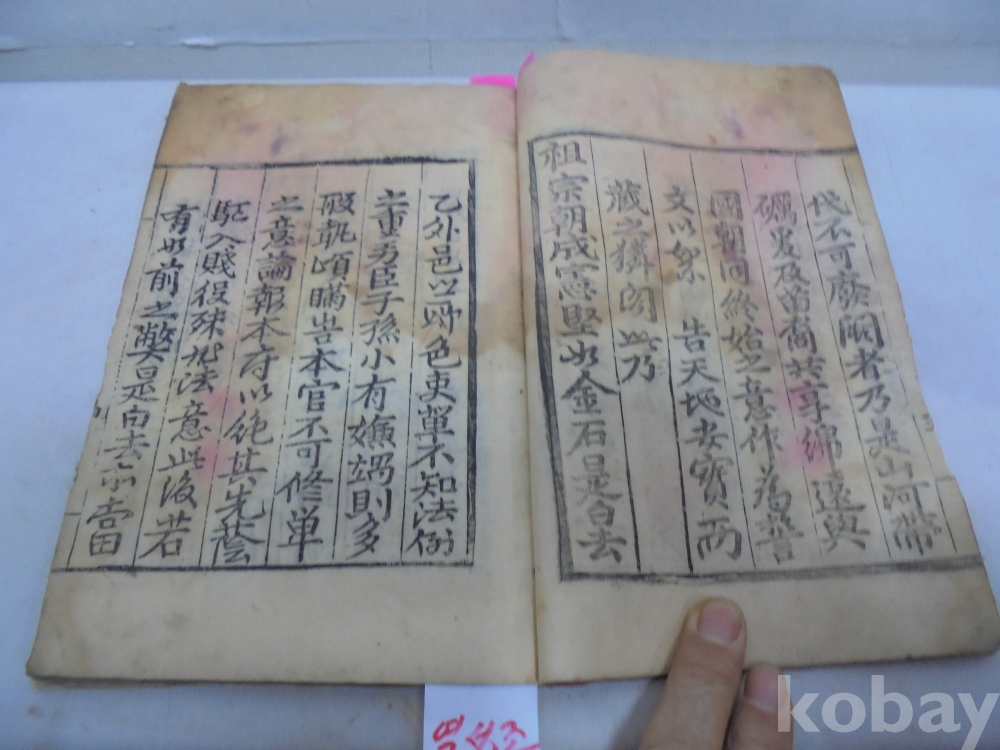 代不可廢闕者乃是山河帶
礪爰及苗裔共享綿遠與
國朝同終始之意作為誓
文以祭 告天地安寶而
藏之猉閣此乃
祖宗朝成憲堅如金石是白去
乙外邑以 色吏單不知法例
之重勇臣子孫小有嫌端則多
般執頉瞞告本官不可修单
之意論報本府以絶其先蔭
駈入賤役殊非法意此後若
有如前之弊是白去 當
kobay